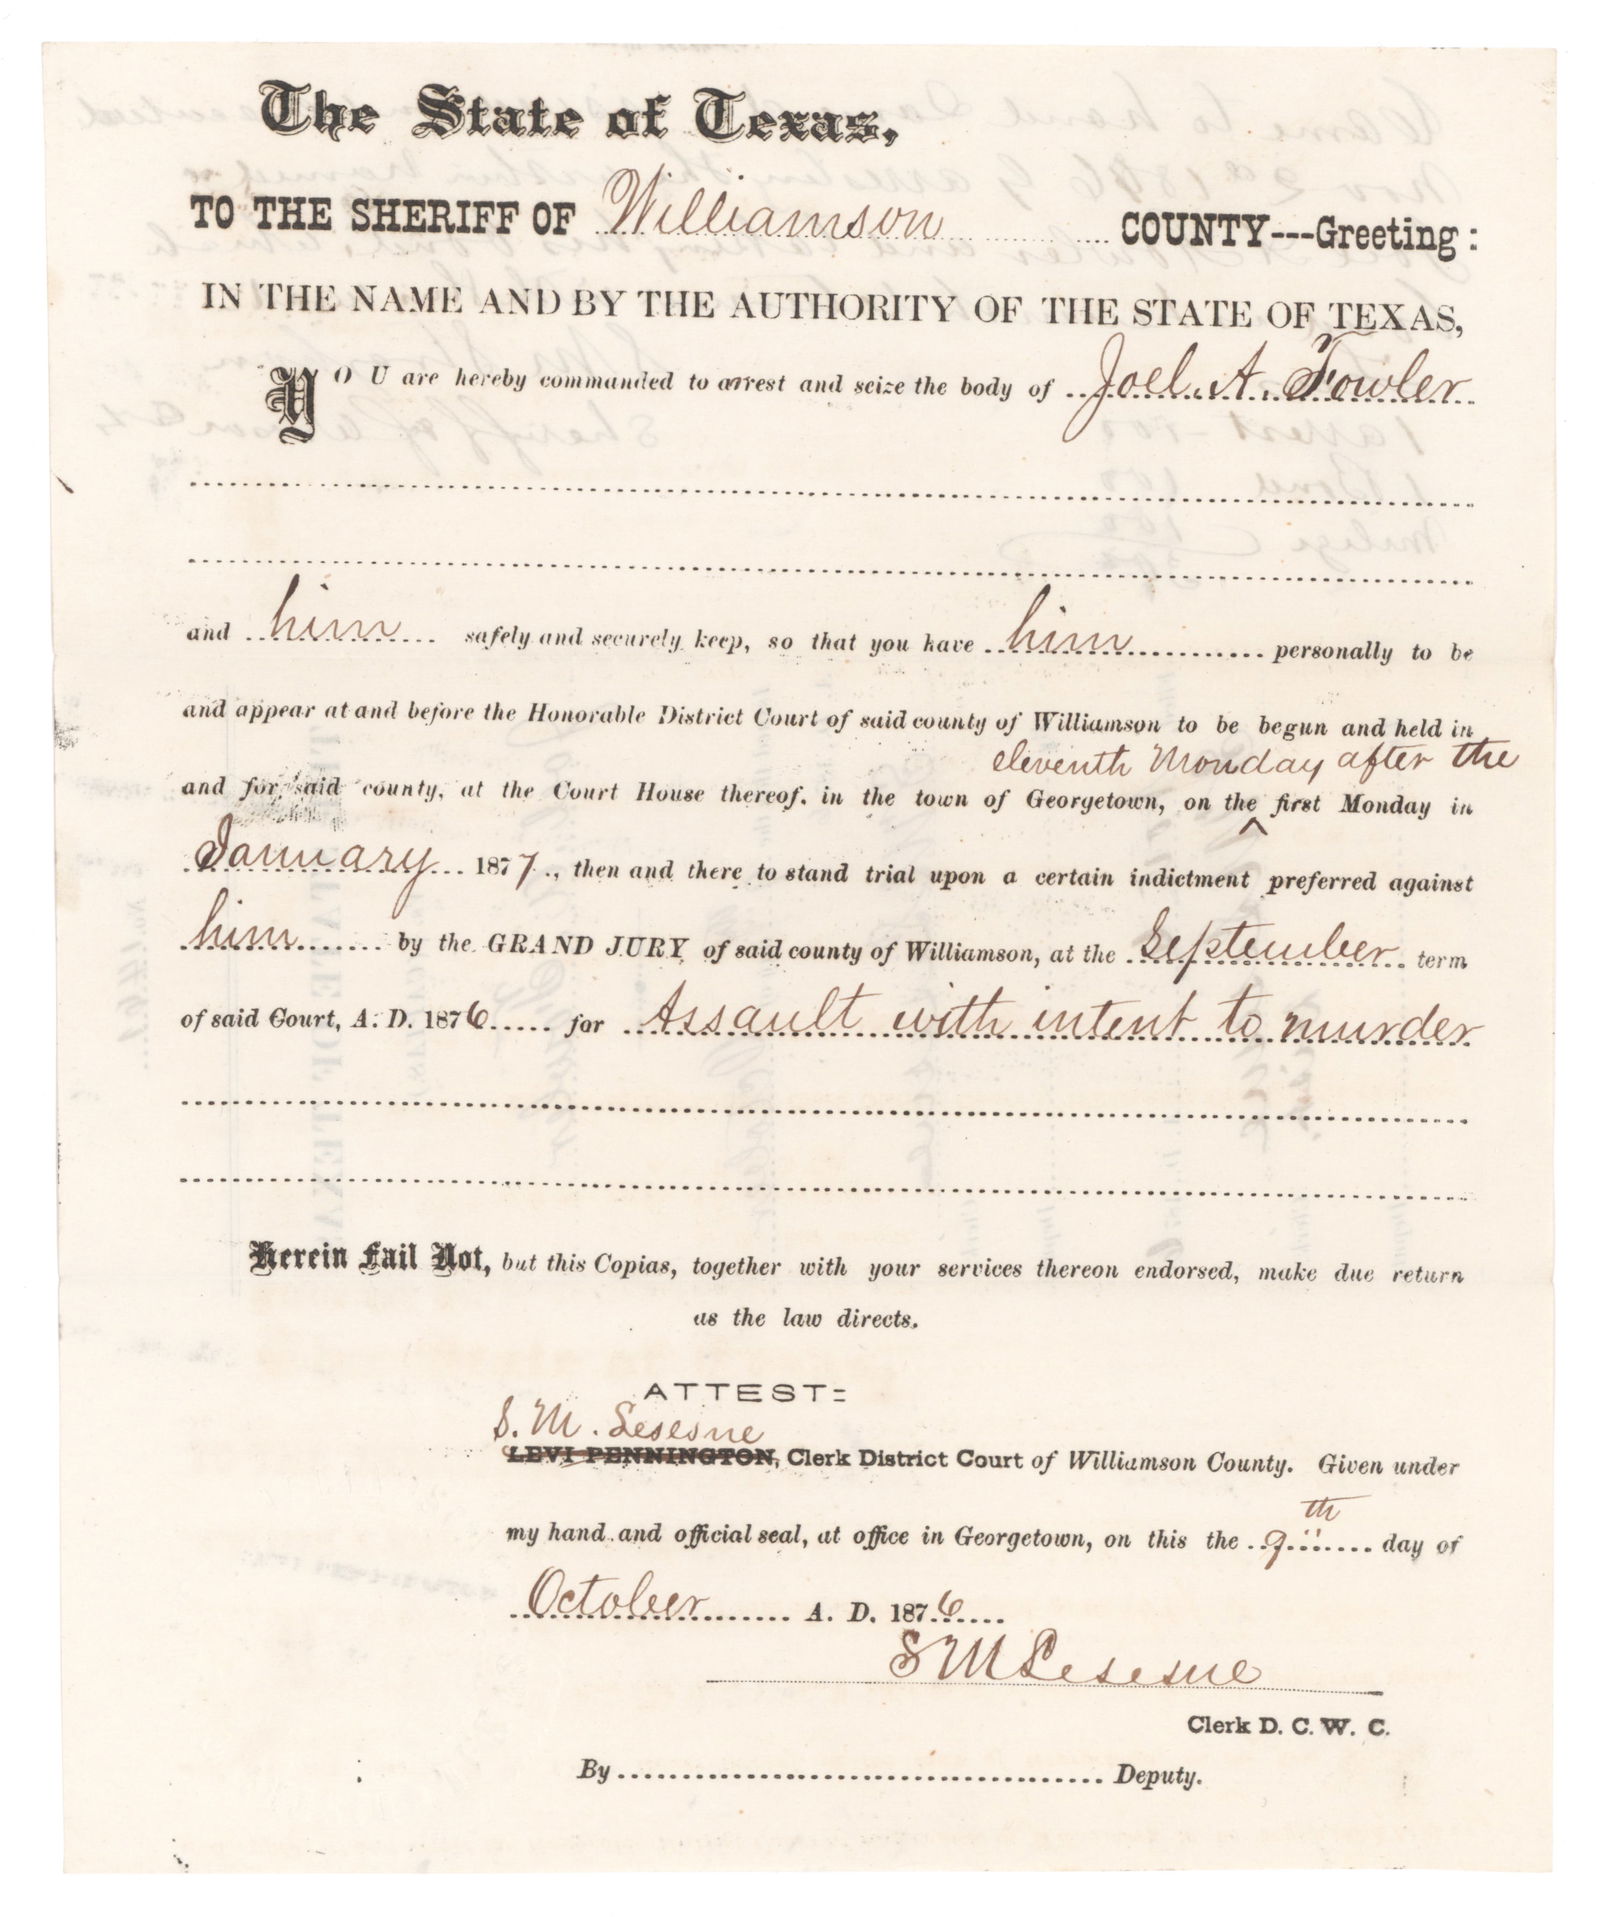 The State of Texas,
TO THE SHERIFF OF Williamson COUNTY---Greeting:
IN THE NAME AND BY THE AUTHORITY OF THE STATE OF TEXAS,
YOU are hereby commanded to arrest and seize the body of Joel. A. Fowler
and him safely and securely keep, so that you have him personally to be
and appear at and before the Honorable District Court of said county of Williamson to be begun and held in
eleventh Monday after the
and for said county, at the Court House thereof. in the town of Georgetown, on the ^ first Monday in
January 1877., then and there to stand trial upon a certain indictment preferred against
him by the GRAND JURY of said county of Williamson, at the September term
of said Court, A. D. 1876 for Assault with intent to murder
Herein Fail Not, but this Copias, together with your services thereon endorsed, make due return
as the law directs.
ATTEST:
S. M. Lesesne
LEVI PENNINGTON, Clerk District Court of Williamson County. Given under
my hand and official seal, at office in Georgetown, on this the 9th day of
October A. D. 1876
S M Lesesne
Clerk D. C. W. C.
By Deputy.